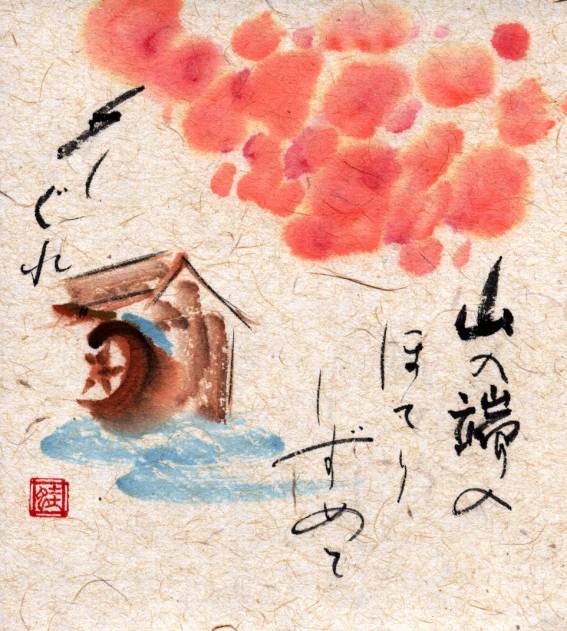 山の端の
ほてり
しずめて
夕しぐれ